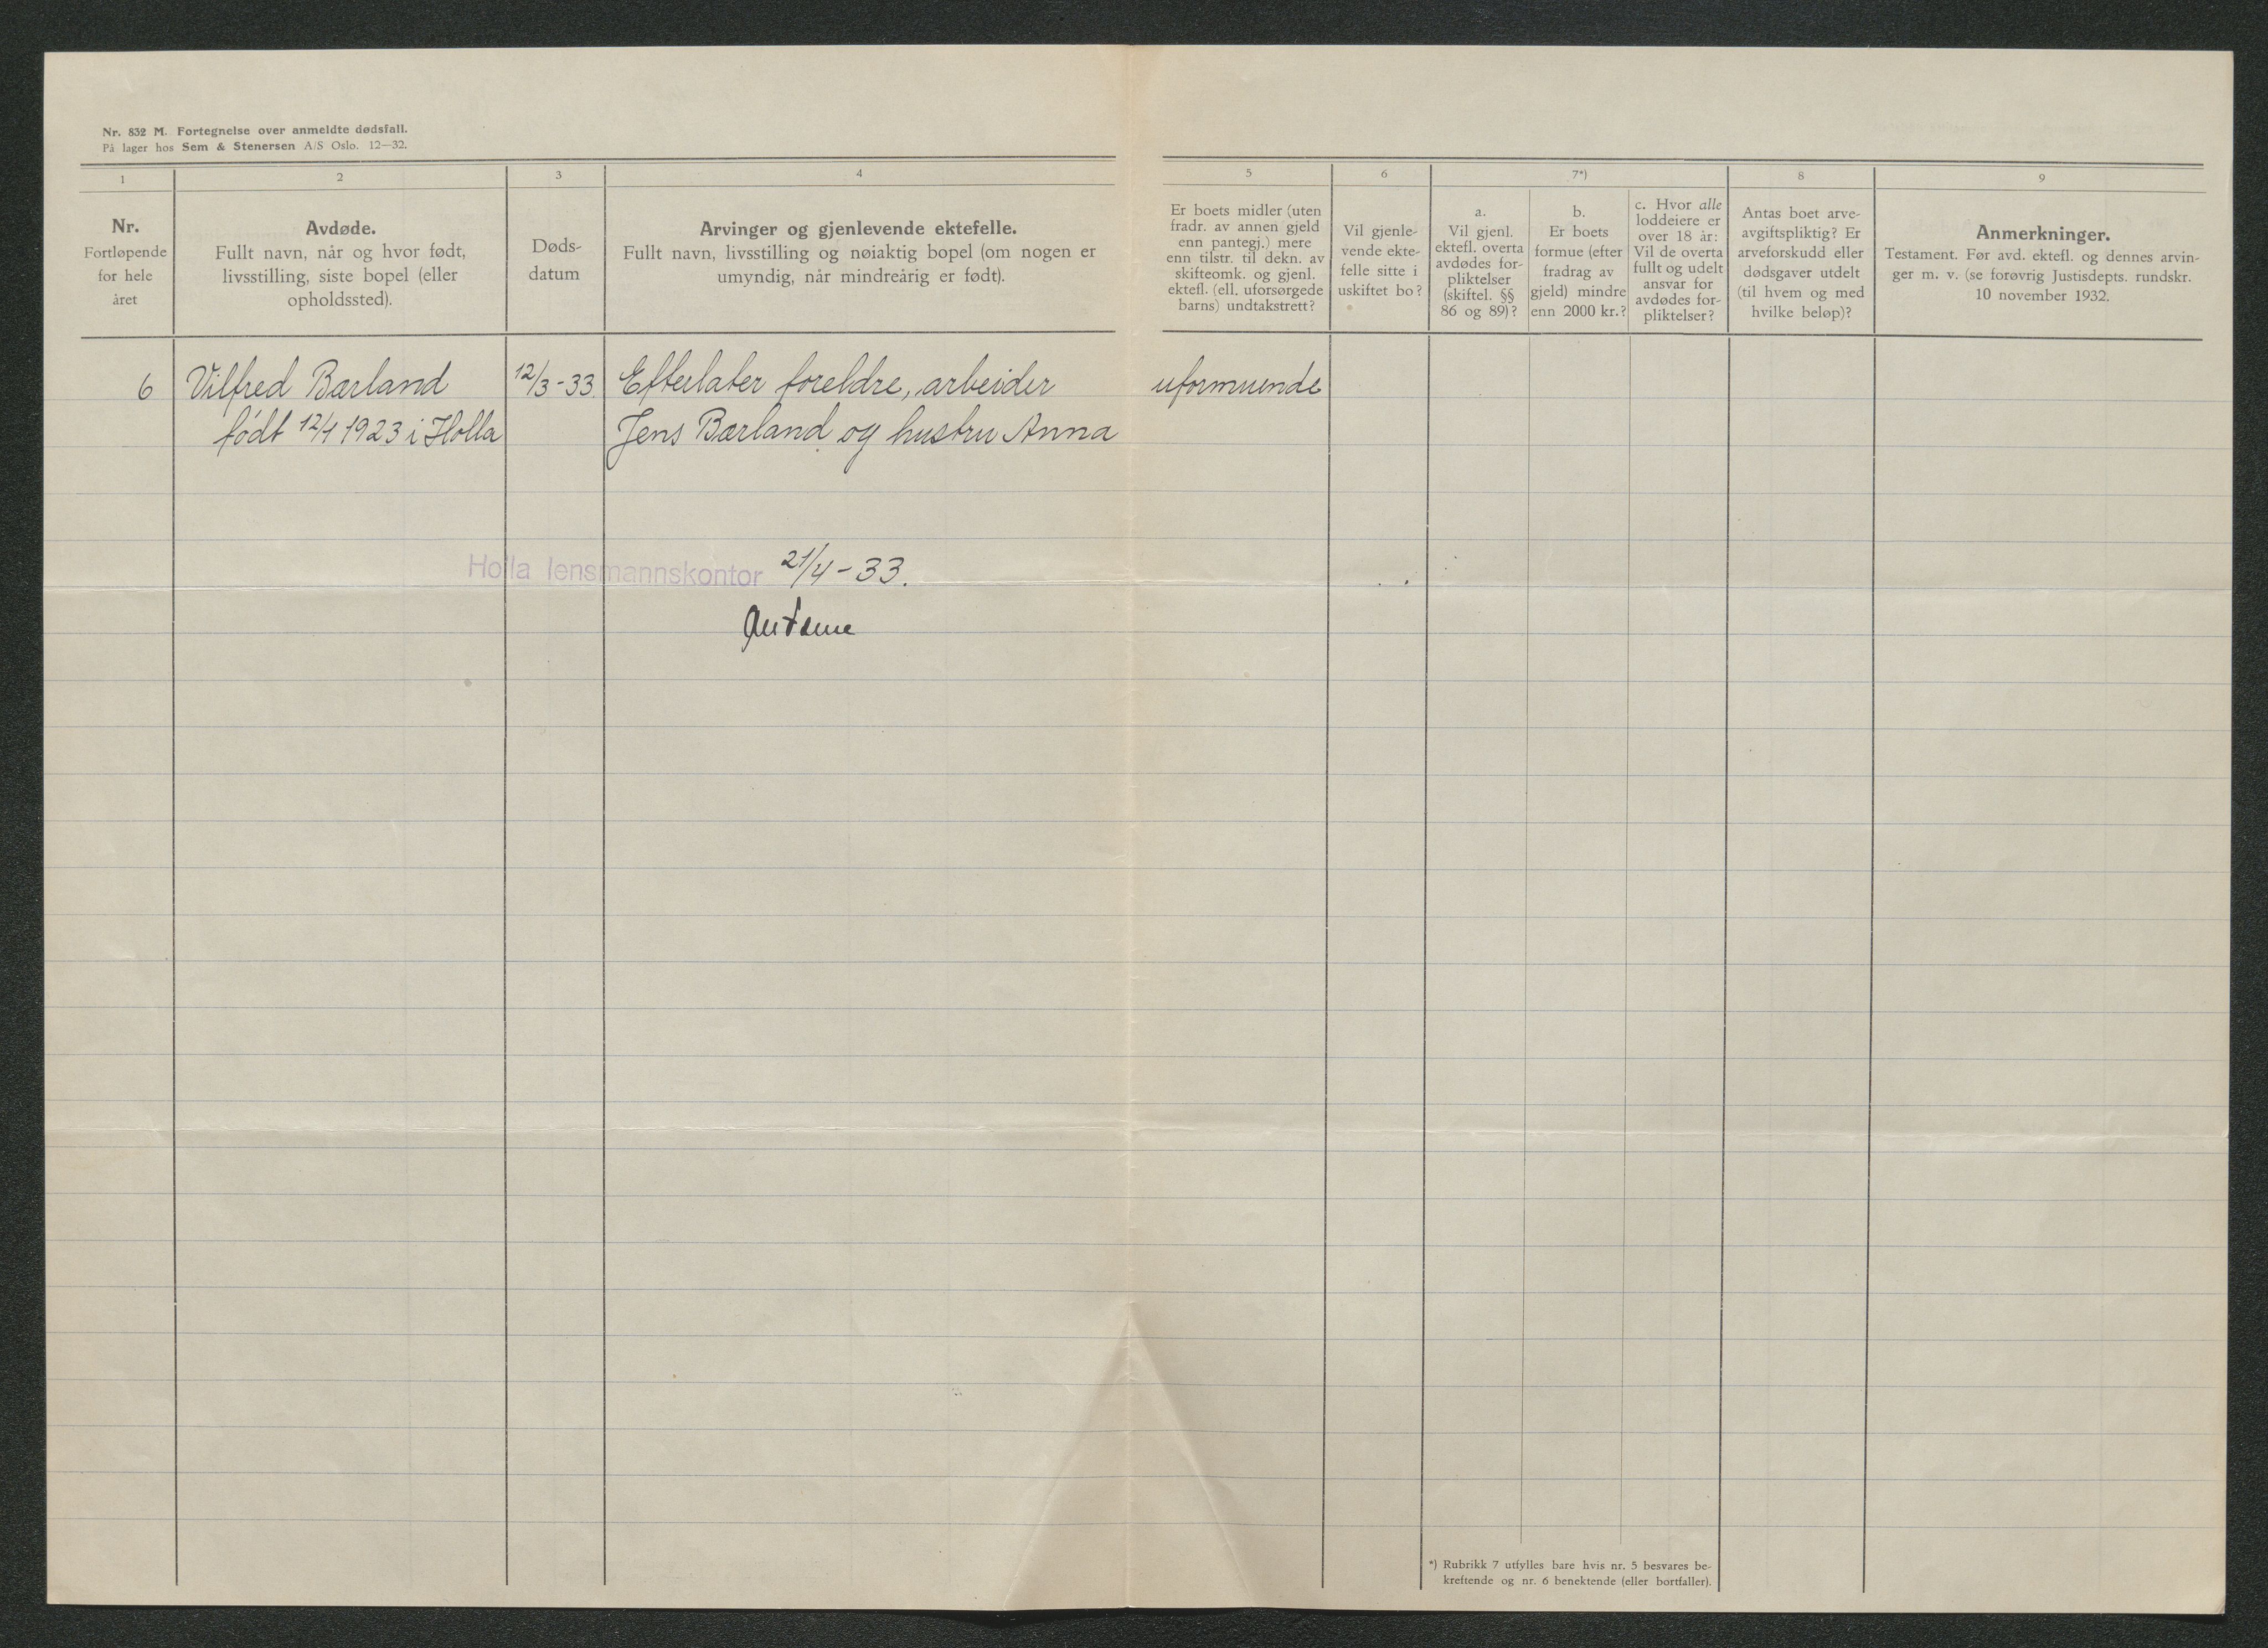 Nr. 832 M. Fortegnelse over anmeldte dødsfall.
På lager hos Sem & Stenersen A/S Oslo. 12—32.
1
Nr.
Fortløpende
for hele
året
2
Avdøde.
Fullt navn, når og hvor født,
livsstilling, siste bopel (eller
opholdssted).
3
Døds-
datum
4
Arvinger og gjenlevende ektefelle.
Fullt navn, livsstilling og nøiaktig bopel (om nogen er
umyndig, når mindreårig er født).
5
Er boets midler (uten
fradr. av annen gjeld
enn pantegj.) mere
enn tilstr. til dekn. av
skifteomk. og gjenl.
ektefl. (ell. uforsørgede
barns) undtakstrett?
6
Vil gjenle-
vende ekte-
felle sitte i
uskiftet bo?
7*)
a.
Vil gjenl.
ektefl. overta
avdødes for-
pliktelser
(skiftel. §§
86 og 89)?
b.
Er boets
formue (efter
fradrag av
gjeld) mindre
enn 2000 kr.?
c. Hvor alle
loddeiere er
over 18 år:
Vil de overta
fullt og udelt
ansvar for
avdødes for-
pliktelser?
8
Antas boet arve-
avgiftspliktig? Er
arveforskudd eller
dødsgaver utdelt
(til hvem og med
hvilke beløp)?
9
Anmerkninger.
Testament. Før avd. ektefl. og dennes arvin-
ger m. v. (se forøvrig Justisdepts. rundskr.
10 november 1932.
6
Vilfred Bærland
født 12/4 1923 i Holla
12/3-33.
Efterlater foreldre, arbeider
Jens Bærland og hustru Anna
uformuende
Holla lensmannskontor 21/4-33.
*) Rubrikk 7 utfylles bare hvis nr. 5 besvares be-
kreftende og nr. 6 benektende (eller bortfaller).